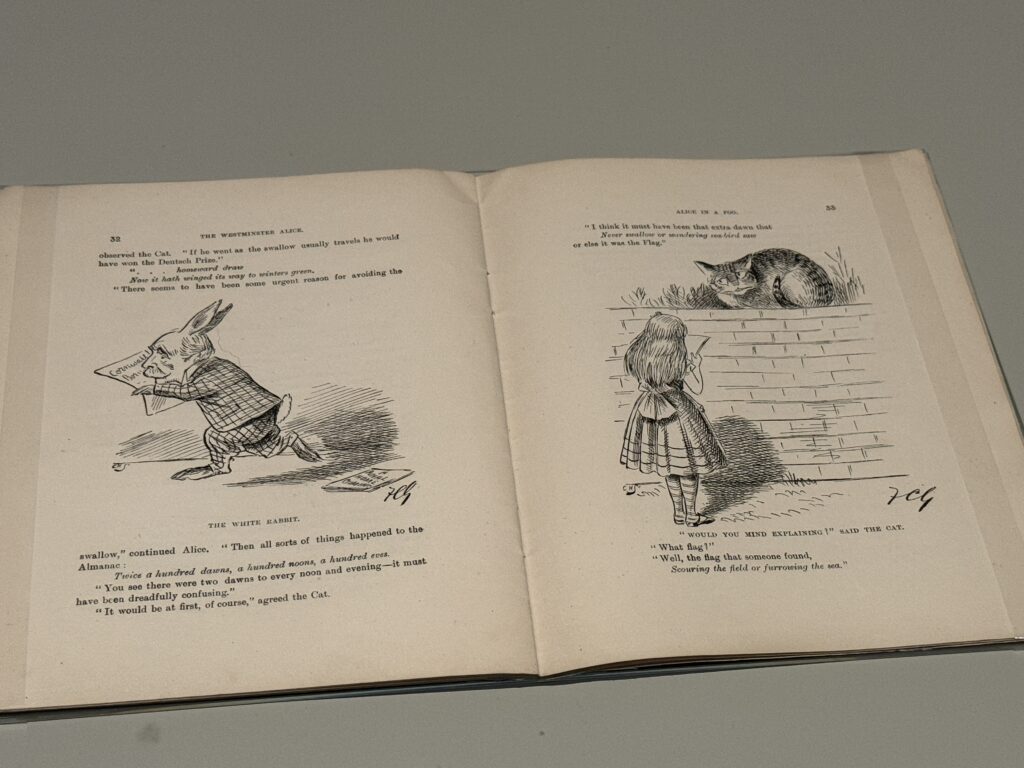 32
THE WESTMINSTER ALICE.
observed the Cat. "If he went as the swallow usually travels he would
have won the Deutsch Prize."
". . . homeward draw
Now it hath winged its way to winters green.
"There seems to have been some urgent reason for avoiding the
Cornwall
FCG
THE WHITE RABBIT.
swallow," continued Alice. "Then all sorts of things happened to the
Almanac:
Twice a hundred dawns, a hundred noons, a hundred eves.
"You see there were two dawns to every noon and evening—it must
have been dreadfully confusing."
"It would be at first, of course," agreed the Cat.
ALICE IN A FOG.
33
"I think it must have been that extra dawn that
Never swallow or wandering sea-bird saw
or else it was the Flag."
FCG
"WOULD YOU MIND EXPLAINING?" SAID THE CAT.
"What flag?"
"Well, the flag that someone found,
Scouring the field or furrowing the sea."